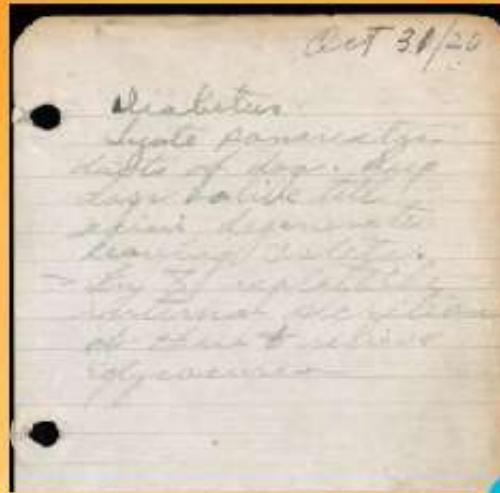 Oct 31/20
Diabetus
Ligate pancreatic
ducts of dog. Keep
dogs alive till
acini degenerate
leaving Islets.
Try to the
internal secretion
of these + relieve
glycosurea